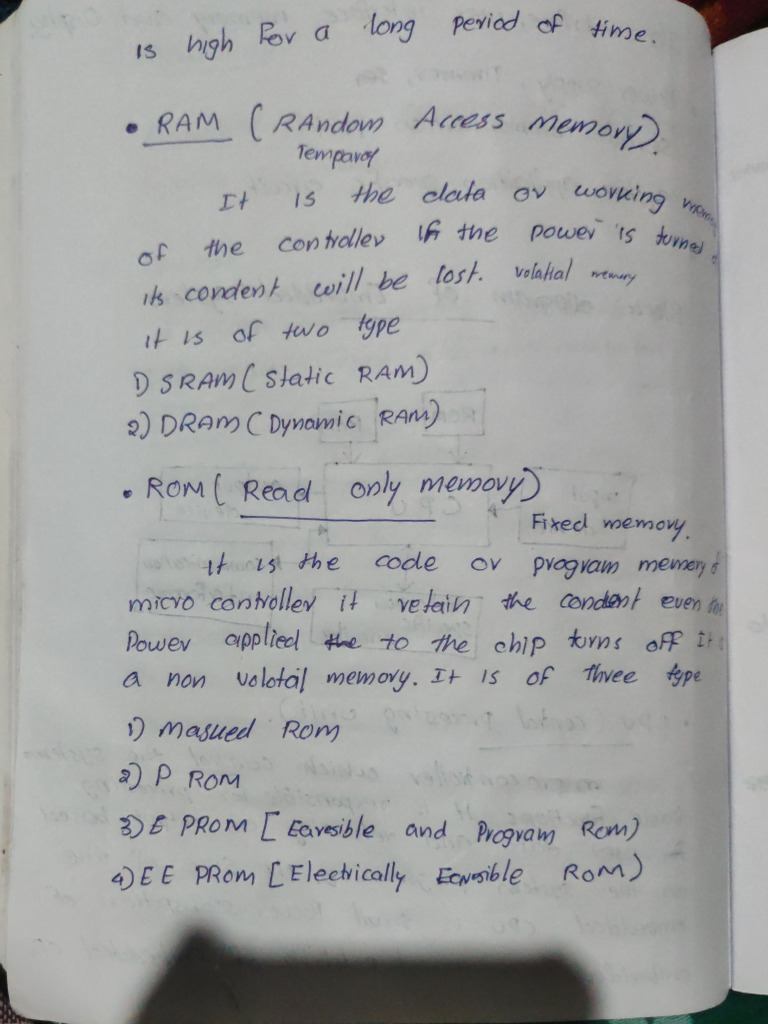 is high For a long period of time.
• RAM ( RAndom Access memory).
Temparay
It is the data or working
of the controller if the power is turned
its condent will be lost. volatial memory
it is of two type
1) SRAM ( Static RAM)
2) DRAM ( Dynamic RAM)
• ROM ( Read only memory)
Fixed memory.
it is the code or program memory of
micro controller it retain the condent even
Power applied the to the chip turns off It is
a non volotal memory. It is of three type
1) masked ROM
2) P ROM
3) E PROM [ Earesible and Program Rom)
4) EE PROM [ Electrically Earesible ROM)